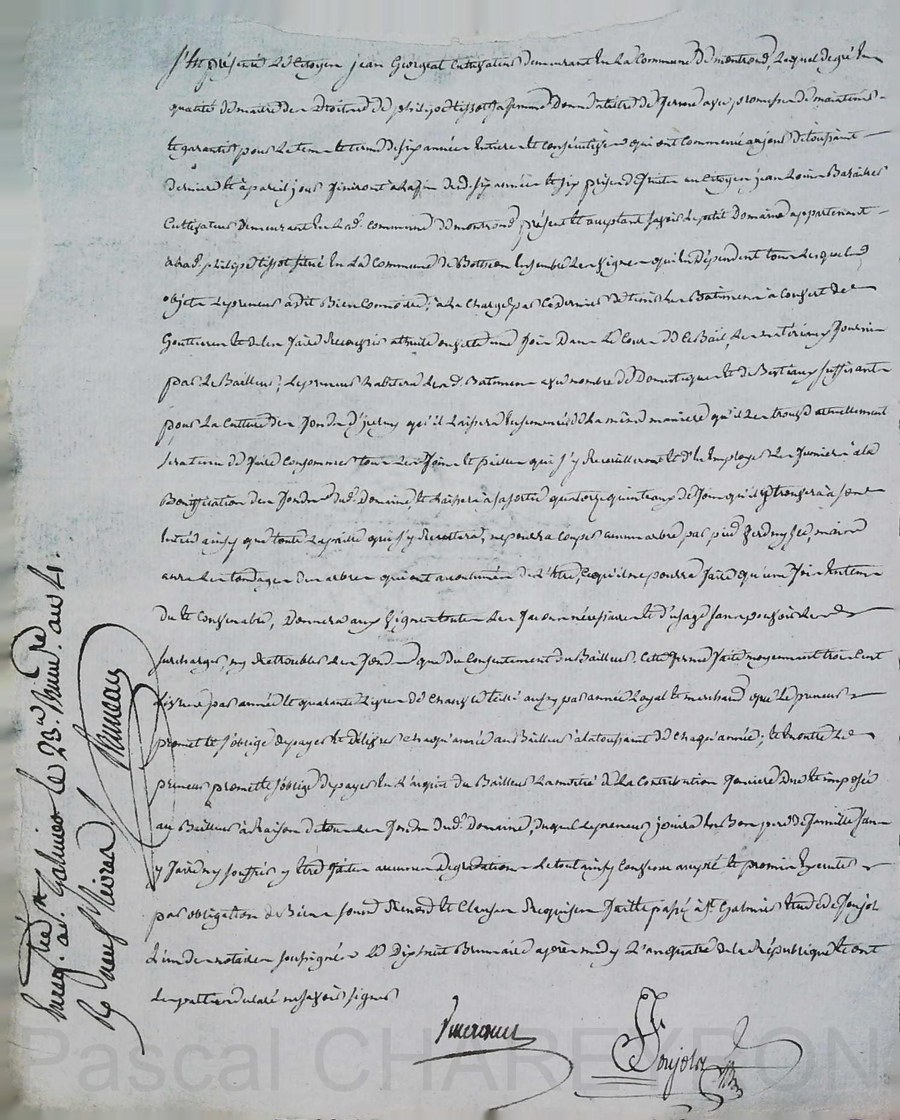 s'est présenté le Citoyen jean Georgeat Cultivateur demeurant en la Commune de montrond, lequel de gré en
qualité de maitre des Droits de philipe tissot sa femme donne à titre de ferme avec promesse de maintenir
et garantir pour le tems et terme de six années entieres et conséqutives qui ont commencé au jour de toussaint
dernier et à pareil jour finiront à la fin desd. six années et six prises de fruits au Citoyen jean Louis
Cultivateur demeurant en lad. commune de montrond, présent et acceptant savoir le petit Domaine appartenant
à lad. philipe tissot situé en la Commune de ensemble les vignes qui en dépendent tous lesquels
objets le preneur a dit Bien Connoitre; à la charge par ce dernier de tenir les Batimens à Couvert de
Goutieres et de les faire Recouvrir à tuile une fois dans le Cours de ce Bail, les matériaux fournis
par le Bailleur; le preneur habitera lesd. Batimens avec nombre de Domestiques et de Bestiaux suffisants
pour la Culture des fonds d'iceux qu'il laissera ensemencés de la même maniere qu'il les trouve actuellement
sera tenu de faire Consommer tous les foins et pailles qui s'y Recueilleront et d'en Employer les fumiers à la
Bonification des fonds dud. Domaine, et laissera à sa sortie quatorze quintaux de foin qu'il trouvera à son
Entrée ainsy que toute la paille qui s'y Recoltera, ne pourra couper aucun arbre par pied verd ny sec, mais
aura les tondages des arbres qui ont accoutumés de l'être, ce qu'il ne pourra faire qu'une fois en tems
du et Convenable, Donnera aux vignes toutes les façons nécessaires et d'usage sans pouvoir les
surcharger, ny Retroubler les fonds que du Consentement du Bailleur. Cette ferme faite moyennant trois Cent
Livres par année et quarante Livres de Chanvre aussy par année Royal et marchand que le preneur
promet et s'oblige de payer et délivrer chaqu'année au Bailleur à la toussaint de chaqu'année; et en outre le
preneur promet et s'oblige de payer en l'acquit du Bailleur la moitié de la Contribution fonciere due et imposée
au Bailleur à Raison de tous les fonds dud. Domaine, duquel le preneur jouira en Bon pere de famille sans
y faire ny souffrir y être faites aucunes Dégradations. Le tout ainsy Convenu accepté et promis Executer
par obligation de Biens soumis. Renonc. et Clauses Requises. fait et passé à St. Galmier Etude de Joujol
l'un des notaires soussignés le Dix huit Brumaire après midy l'an quatre de la République Et ont
les parties déclaré ne savoir signer
Joujolx
Enreg. tré à St. Galmier le 23. Brum. re an 4.
R. neuf Livres